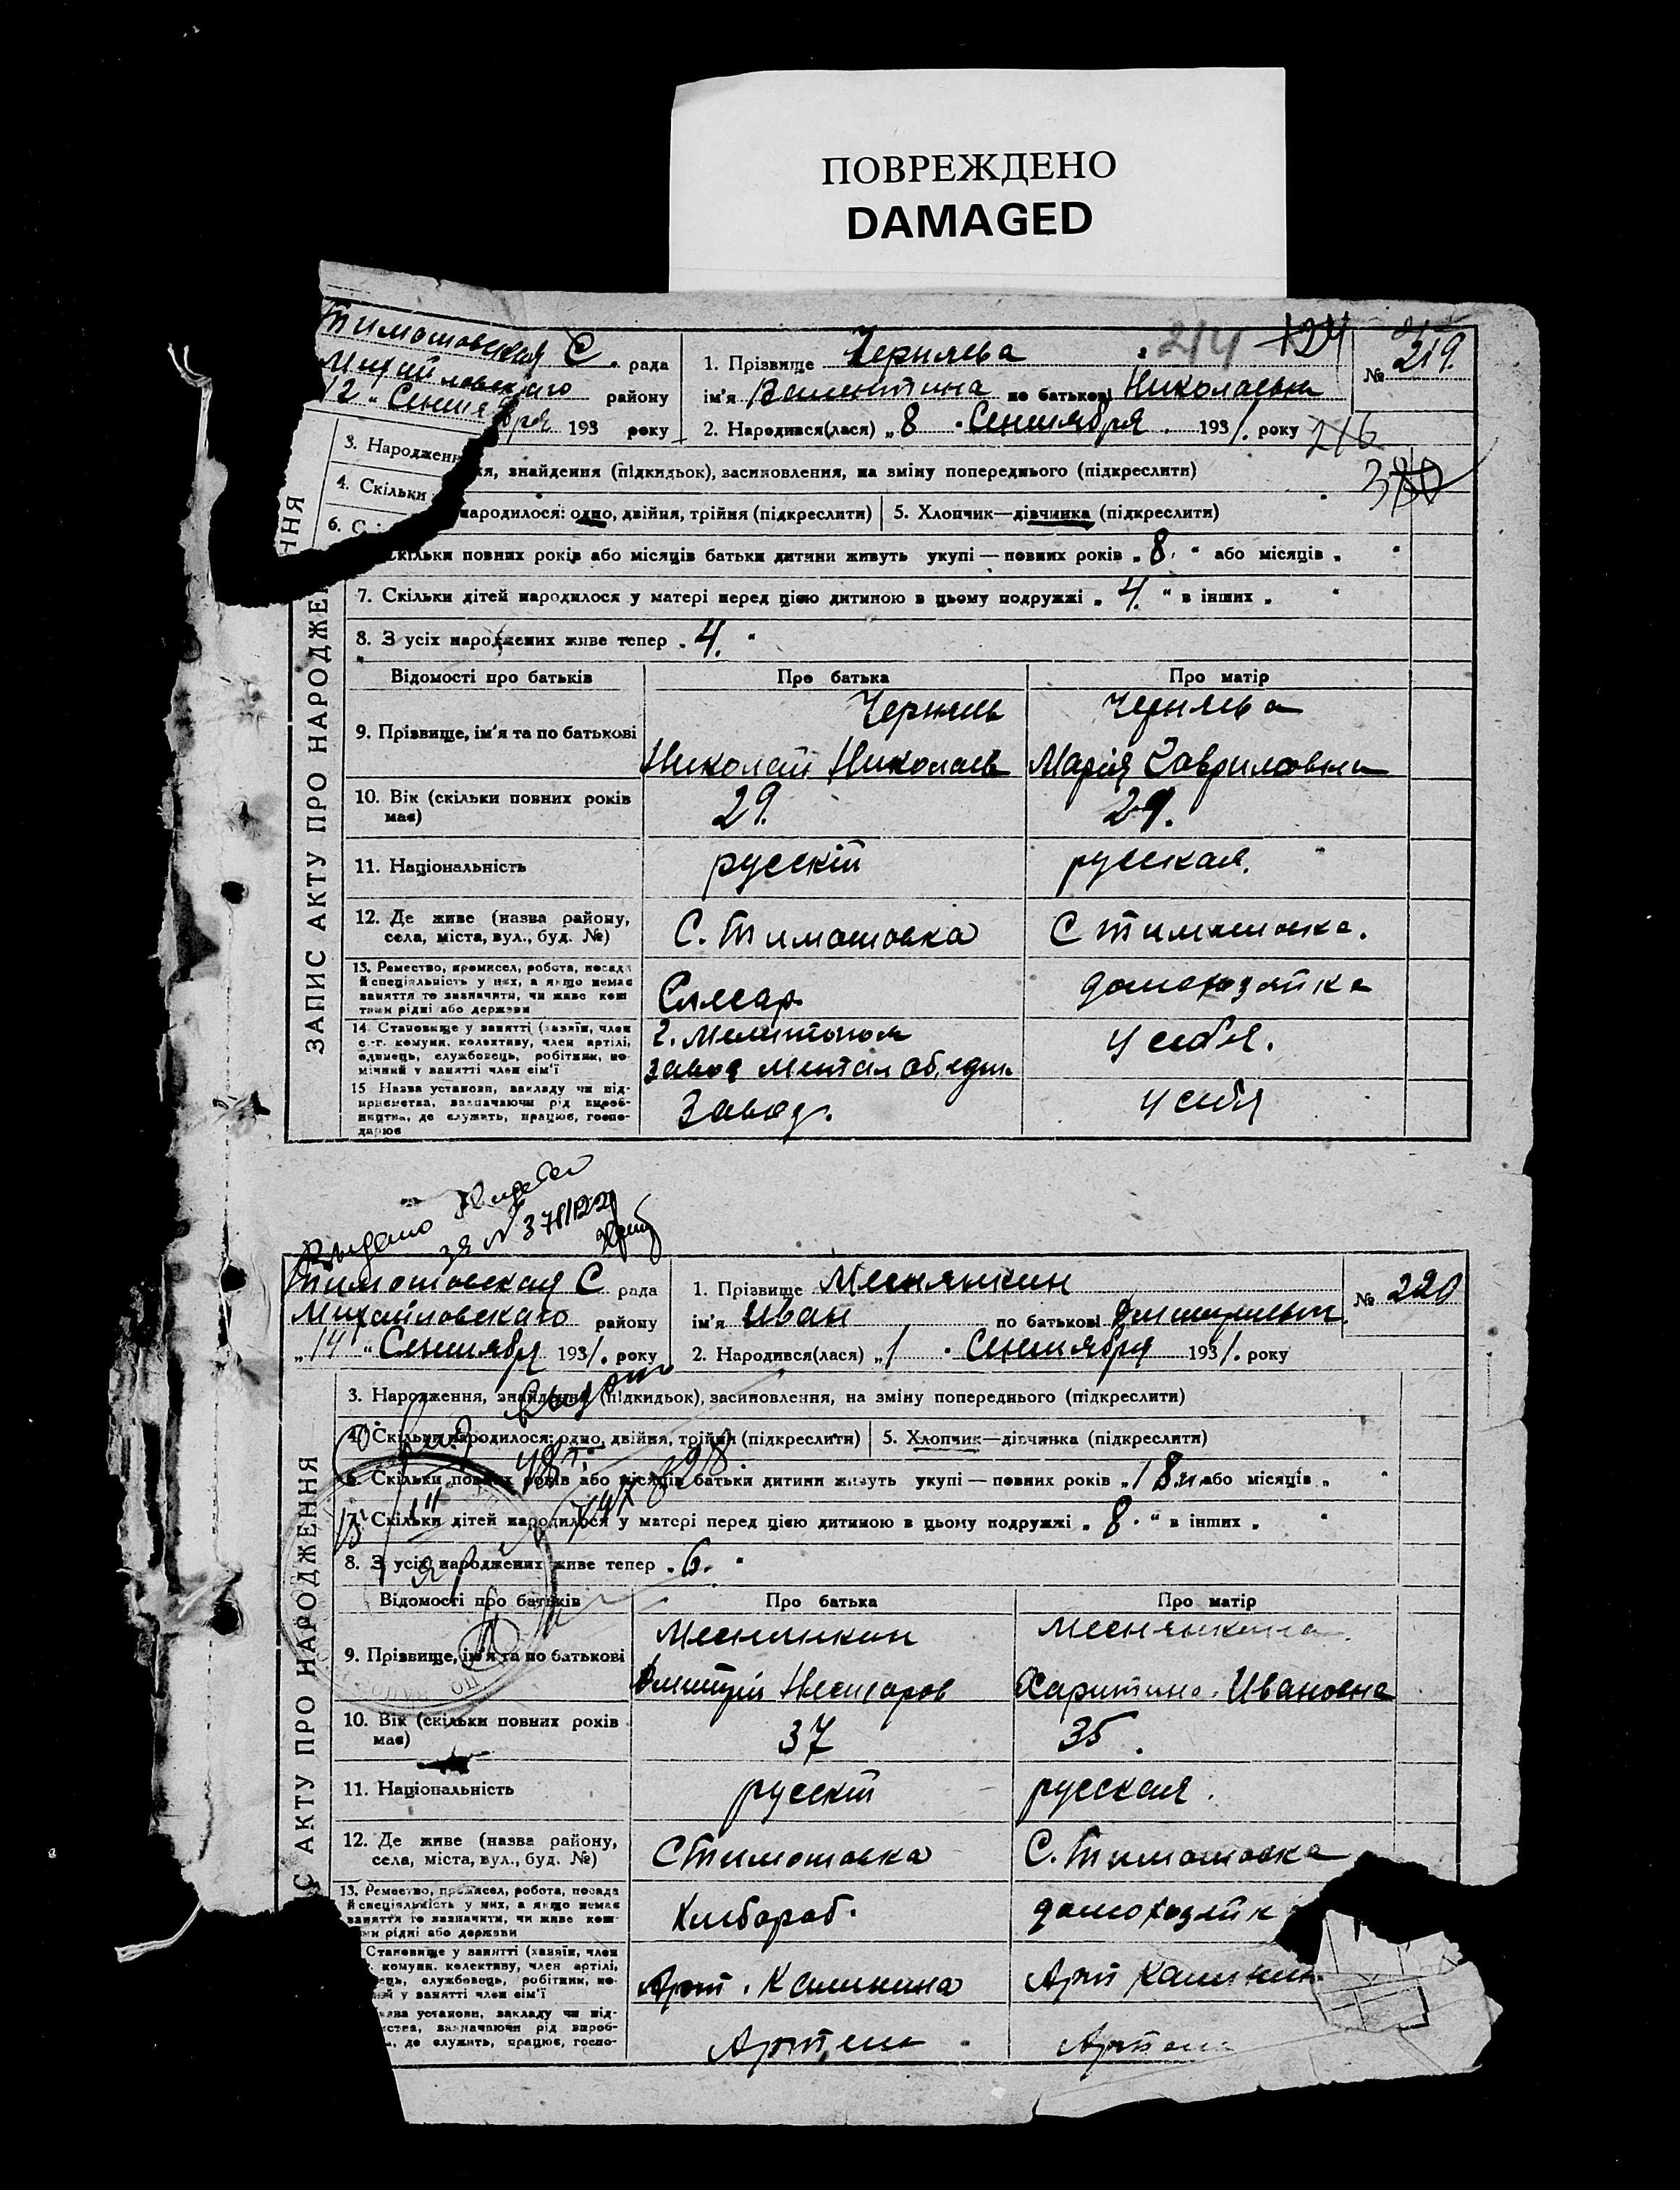 ПОВРЕЖДЕНО
DAMAGED
Тимошовская С. рада
Михайловскаго району
12 " Сентября 193 року
1. Прізвище Черняева
ім'я Валентина по батькові Николаевн
2. Народився(лася) „ 8 " Сентября 1931. року
214 124
№ 219.
216
3. Народження, знайдення (підкидьок), засиновлення, на зміну попереднього (підкреслити)
4. Скільки народилося: одно, двійня, трійня (підкреслити) 5. Хлопчик—дівчинка (підкреслити)
6. Скільки повних років або місяців батьки дитини живуть укупі — повних років „ 8. " або місяців „ "
7. Скільки дітей народилося у матері перед цією дитиною в цьому подружжі „ 4. " в інших „ "
8. З усіх народжених живе тепер „ 4. "
Відомості про батьків Про батька Про матір
9. Прізвище, ім'я та по батькові
Черняев
Николай Николаев
Черняева
Мария Гавриловна
10. Вік (скільки повних років має)
29.
29.
11. Національність
русскій
русская.
12. Де живе (назва району,
села, міста, вул., буд. №)
С. Тимошовка
С Тимошовка.
13. Ремество, промисел, робота, посада
й спеціяльність у них, а якщо немає
заняття то зазначити, чи живе кош
тами рідні або держави
Слесар
домохозяйка
14. Становище у занятті (хазяїн, член
с.-г. комуни, колективу, член артілі,
одинець, службовець, робітник, по-
мічний у занятті член сім'ї
г. Мелитопол
завод
у себя.
15 Назва установи, закладу чи під-
приємства, зазначаючи рід вироб-
ництва, де служить, працює, госпо-
дарює
Завод.
у себя
ЗАПИС АКТУ ПРО НАРОДЖЕННЯ
Выдано
за №
Тимошовская С рада
Михайловскаго району
„ 14 " Сентября 1931. року
1. Прізвище Меснянкин
ім'я Иван по батькові Дмитриевич
2. Народився(лася) „ 1 " Сентября 1931. року
№ 220
3. Народження, знайдення (підкидьок), засиновлення, на зміну попереднього (підкреслити)
4. Скільки народилося: одно, двійня, трійня (підкреслити) 5. Хлопчик—дівчинка (підкреслити)
6. Скільки повних років або місяців батьки дитини живуть укупі — повних років „ 18 " або місяців „ "
7. Скільки дітей народилося у матері перед цією дитиною в цьому подружжі „ 8. " в інших „ "
8. З усіх народжених живе тепер „ 6. "
Відомості про батьків Про батька Про матір
9. Прізвище, ім'я та по батькові
Меснянкин
Дмитрій
Меснянкина
Харитина Ивановна
10. Вік (скільки повних років
має)
37
35.
11. Національність
русскій
русская.
12. Де живе (назва району,
села, міста, вул., буд. №)
С Тимошовка
С. Тимошовка
13. Ремество, промисел, робота, посада
й спеціяльність у них, а якщо немає
заняття то зазначити, чи живе кош-
ми рідні або держави
Хлебороб.
домохозяйк
Становище у занятті (хазяїн, член
комуни, колективу, член артілі,
службовець, робітник, по-
у занятті член сім'ї
Арт. Калинина
Арт Калинин
установи, закладу чи під-
зазначаючи рід вироб-
де служить, працює, госпо-
Артель
Артель
АКТУ ПРО НАРОДЖЕННЯ